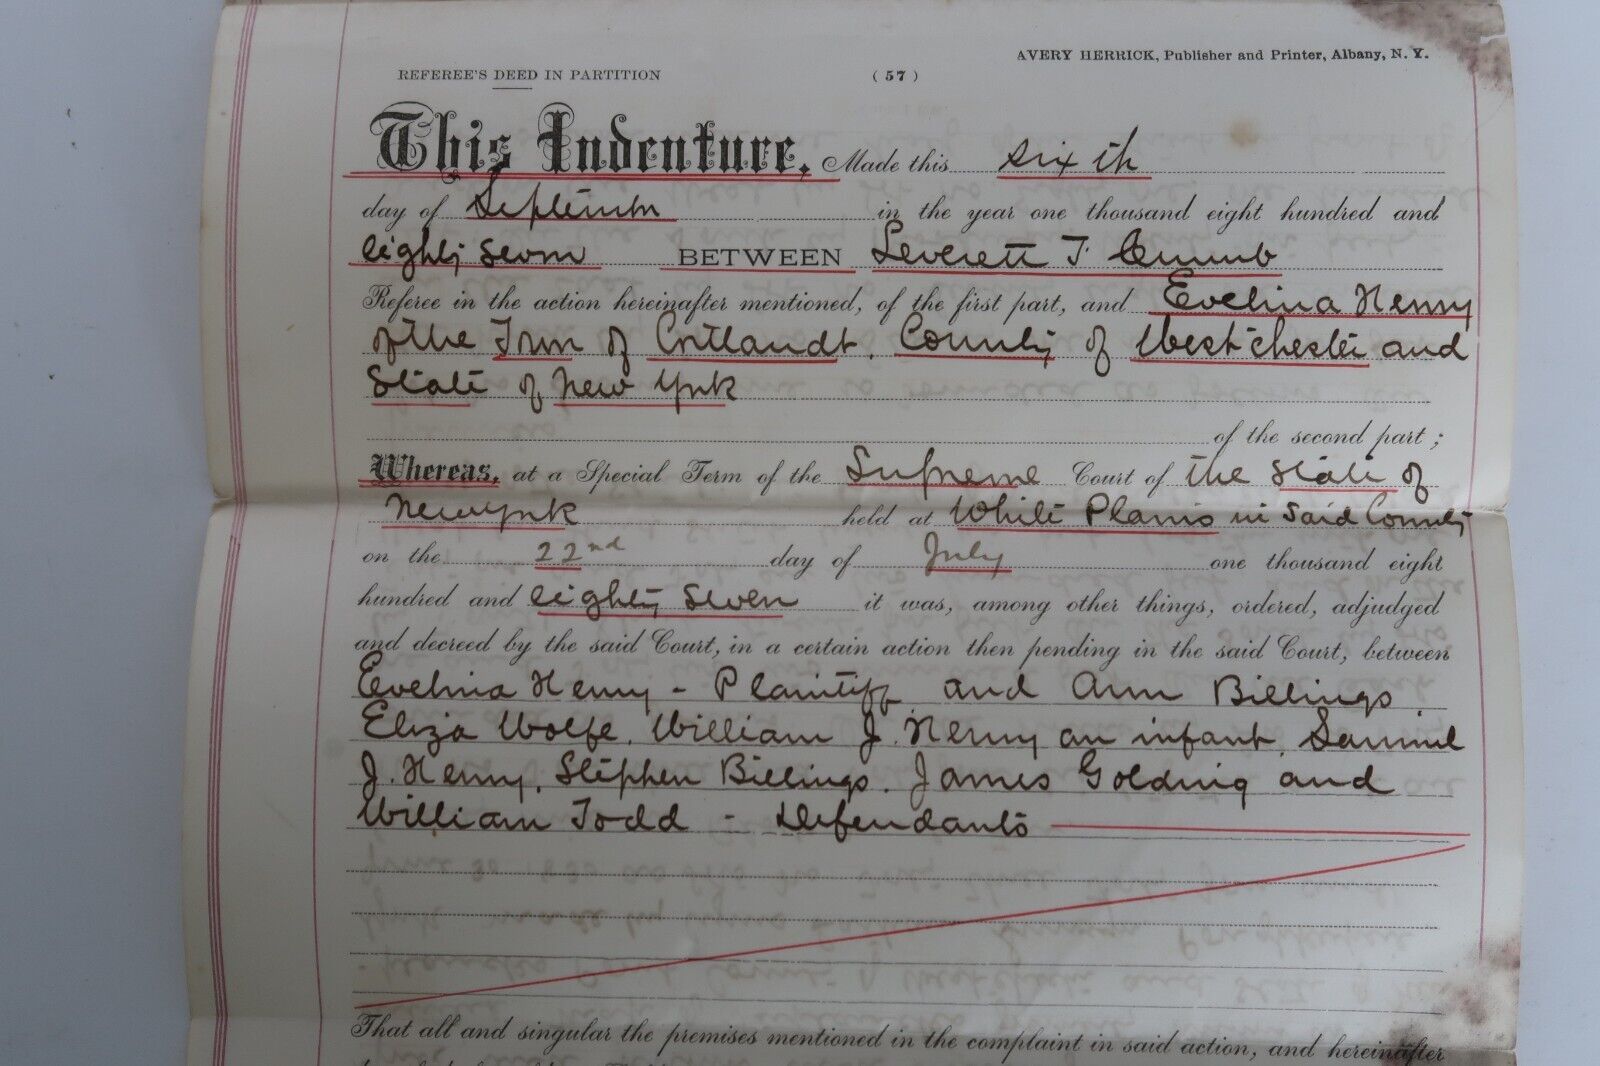 AVERY HERRICK, Publisher and Printer, Albany, N. Y.
REFEREE'S DEED IN PARTITION (57)
This Indenture, Made this sixth
day of September in the year one thousand eight hundred and
eighty seven BETWEEN Leverett F. Crumb
Referee in the action hereinafter mentioned, of the first part, and Evelina Henry
of the Town of Cortlandt. County of Westchester and
State of New York
of the second part;
Whereas, at a Special Term of the Supreme Court of the State of
New York held at White Plains in Said County
on the 22nd day of July one thousand eight
hundred and eighty seven it was, among other things, ordered, adjudged
and decreed by the said Court, in a certain action then pending in the said Court, between
Evelina Henry - Plaintiff and Ann Billings.
Eliza Wolfe. William J. Henry an infant. Samuel
J. Henry. Stephen Billings. James Golding and
William Todd - Defendants
That all and singular the premises mentioned in the complaint in said action, and hereinafter